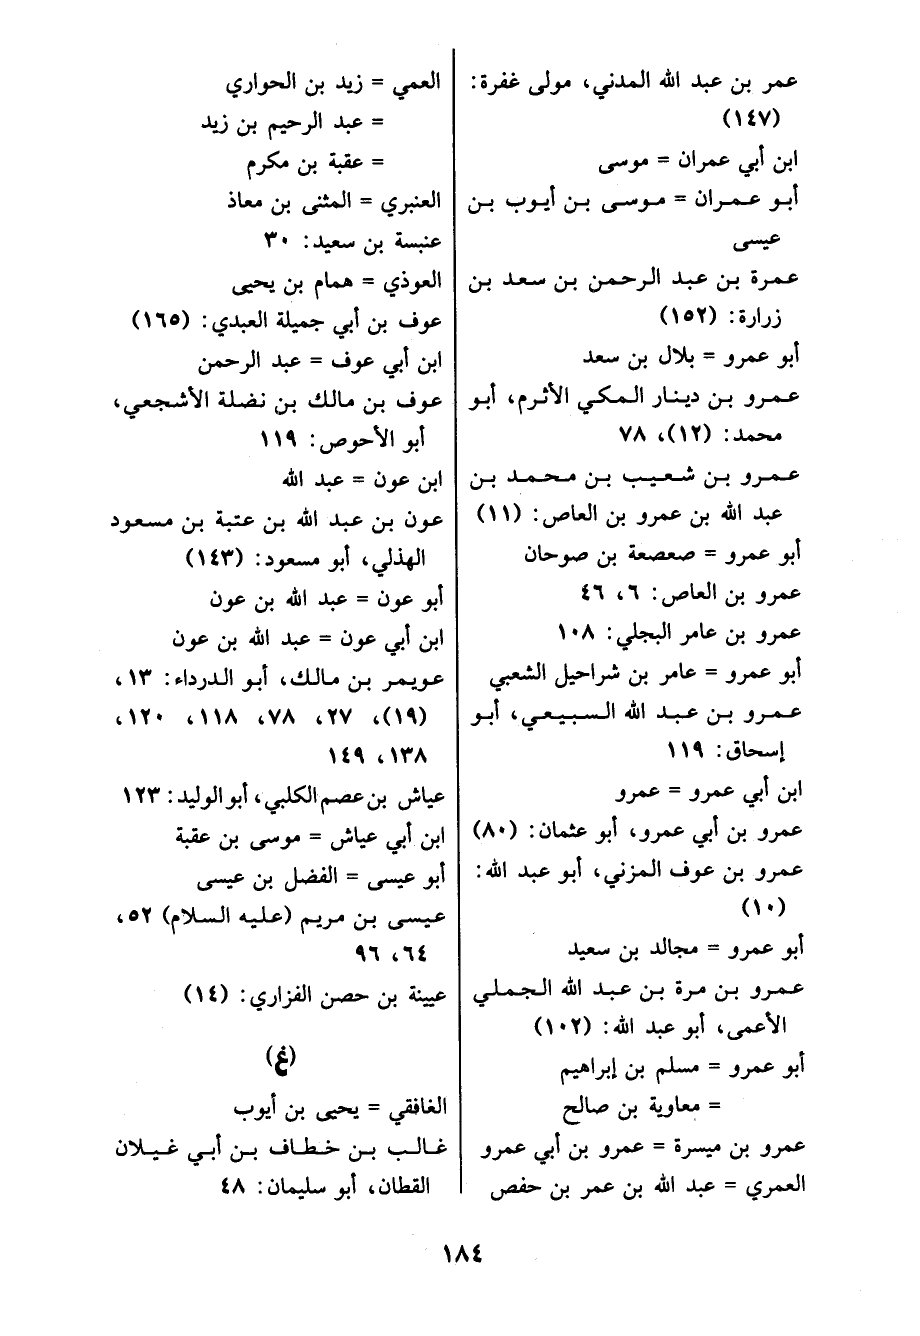 عمر بن عبد الله المدني، مولى غفرة:
(١٤٧)
ابن أبي عمران = موسى
أبو عمران = موسى بن أيوب بن
عيسى
عمرة بن عبد الرحمن بن سعد بن
زرارة: (١٥٢)
أبو عمرو = بلال بن سعد
عمرو بن دينار المكي الأثرم، أبو
محمد: (١٢)، ٧٨
عمرو بن شعيب بن محمد بن
عبد الله بن عمرو بن العاص: (١١)
أبو عمرو = صعصعة بن صوحان
عمرو بن العاص: ٦، ٤٦
عمرو بن عامر البجلي: ١٠٨
أبو عمرو = عامر بن شراحيل الشعبي
عمرو بن عبد الله السبيعي، أبو
إسحاق: ١١٩
ابن أبي عمرو = عمرو
عمرو بن أبي عمرو، أبو عثمان: (٨٠)
عمرو بن عوف المزني، أبو عبد الله:
(١٠)
أبو عمرو = مجالد بن سعيد
عمرو بن مرة بن عبد الله الجملي
الأعمى، أبو عبد الله: (١٠٢)
أبو عمرو = مسلم بن إبراهيم
= معاوية بن صالح
عمرو بن ميسرة = عمرو بن أبي عمرو
العمري = عبد الله بن عمر بن حفص
العمي = زيد بن الحواري
= عبد الرحيم بن زيد
= عقبة بن مكرم
العنبري = المثنى بن معاذ
عنبسة بن سعيد: ٣٠
العوذي = همام بن يحيى
عوف بن أبي جميلة العبدي: (١٦٥)
ابن أبي عوف = عبد الرحمن
عوف بن مالك بن نضلة الأشجعي،
أبو الأحوص: ١١٩
ابن عون = عبد الله
عون بن عبد الله بن عتبة بن مسعود
الهذلي، أبو مسعود: (١٤٣)
أبو عون = عبد الله بن عون
ابن أبي عون = عبد الله بن عون
عويمر بن مالك، أبو الدرداء: ١٣،
(١٩)، ٢٧، ٧٨، ١١٨، ١٢٠،
١٣٨، ١٤٩
عياش بن عصم الكلبي، أبو الوليد: ١٢٣
ابن أبي عياش = موسى بن عقبة
أبو عيسى = الفضل بن عيسى
عيسى بن مريم (عليه السلام) ٥٢،
٦٤، ٩٦
عيينة بن حصن الفزاري: (١٤)
(غ)
الغافقي = يحيى بن أيوب
غالب بن خطاف بن أبي غيلان
القطان، أبو سليمان: ٤٨
١٨٤